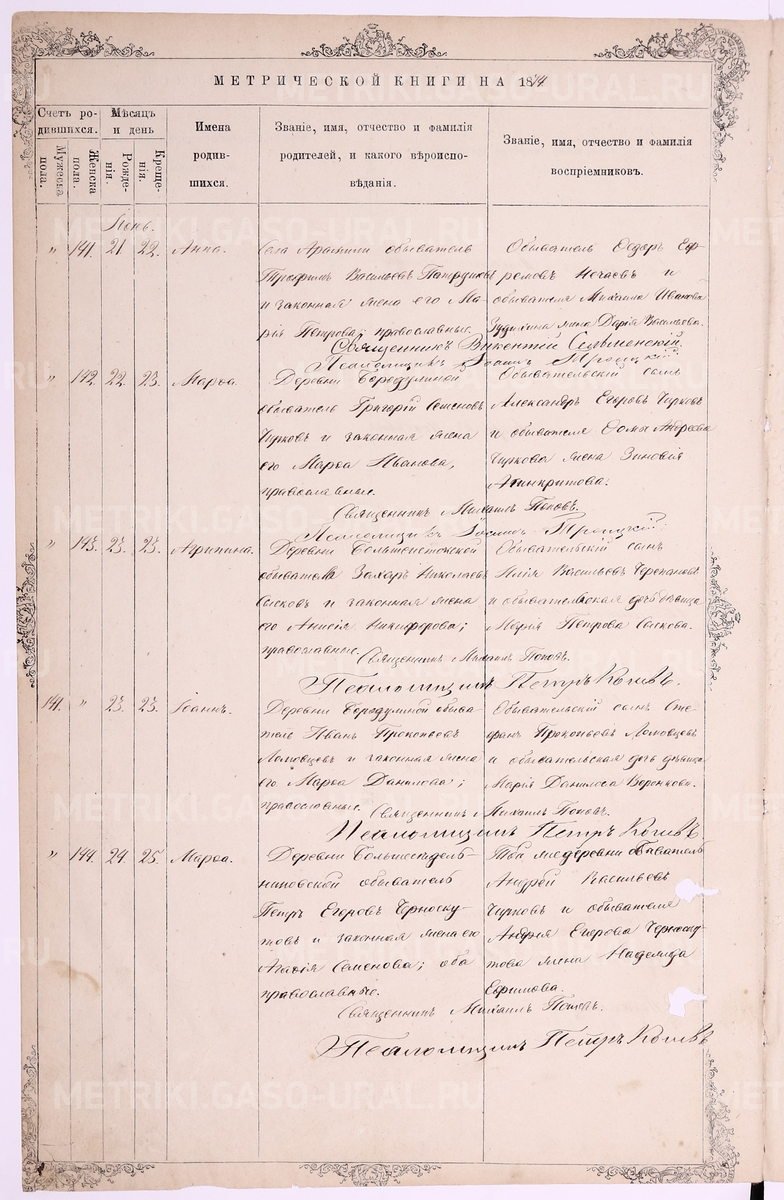 МЕТРИЧЕСКОЙ КНИГИ НА 1874
Счетъ родившихся.
Мужеска пола.
Женска пола.
Мѣсяцъ и день
Рожденія.
Крещенія.
Имена родившихся.
Званіе, имя, отчество и фамилія родителей, и какого вѣроисповѣданія.
Званіе, имя, отчество и фамилія воспріемниковъ.
Іюнь.
" 141. 21. 22. Анна.
Села Арамили обыватель
Трофимъ Васильевъ
и законная жена его Марія Петрова; православные.
Обыватель Ѳедоръ Ефремовъ Нечаевъ и
обывателя Михаила Иванова
жена Дарія Васильева.
Священникъ Викентій
Псаломщикъ Іоаннъ Троицкій
" 142. 22. 23. Марѳа.
Деревни Бородулиной
обыватель Григорій Семеновъ
Чирковъ и законная жена
его Марѳа Иванова,
православные.
Обывательскій сынъ
Александръ Егоровъ Чирковъ
и обывателя Ѳомы Андреева
Чиркова жена Зиновія
Священникъ Михаилъ Поповъ.
Псаломщикъ Іоаннъ Троицкій
" 143. 23. 23. Агрипина.
Деревни
обыватель Захаръ Николаевъ
Сысковъ и законная жена
его Анисія Никифорова;
православные.
Обывательскій сынъ
Илія Васильевъ Черепановъ
и обывательская дочь дѣвица
Марія Петрова Сыскова.
Священникъ Михаилъ Поповъ.
Псаломщикъ Петръ
141. " 23. 23. Іоаннъ.
Деревни Бородулиной обыватель Иванъ Прокопьевъ
Ломовцевъ и законная жена
его Марѳа Данилова;
православные.
Обывательскій сынъ Стефанъ Прокопьевъ Ломовцевъ
и обывательская дочь дѣвица
Марія Данилова Воронкова.
Священникъ Михаилъ Поповъ.
Псаломщикъ Петръ
" 144. 24. 25. Марѳа.
Деревни Большеседельниковской обыватель
Петръ Егоровъ Черноскутовъ и законная жена его
Агафія Семенова; оба
православные.
Той же деревни обыватель
Андрей Васильевъ
Чирковъ и обывателя
Андрея Егорова Черноскутова жена Надежда
Ефимова.
Священникъ Михаилъ Поповъ.
Псаломщикъ Петръ
METRIKI.GASO-URAL.RU